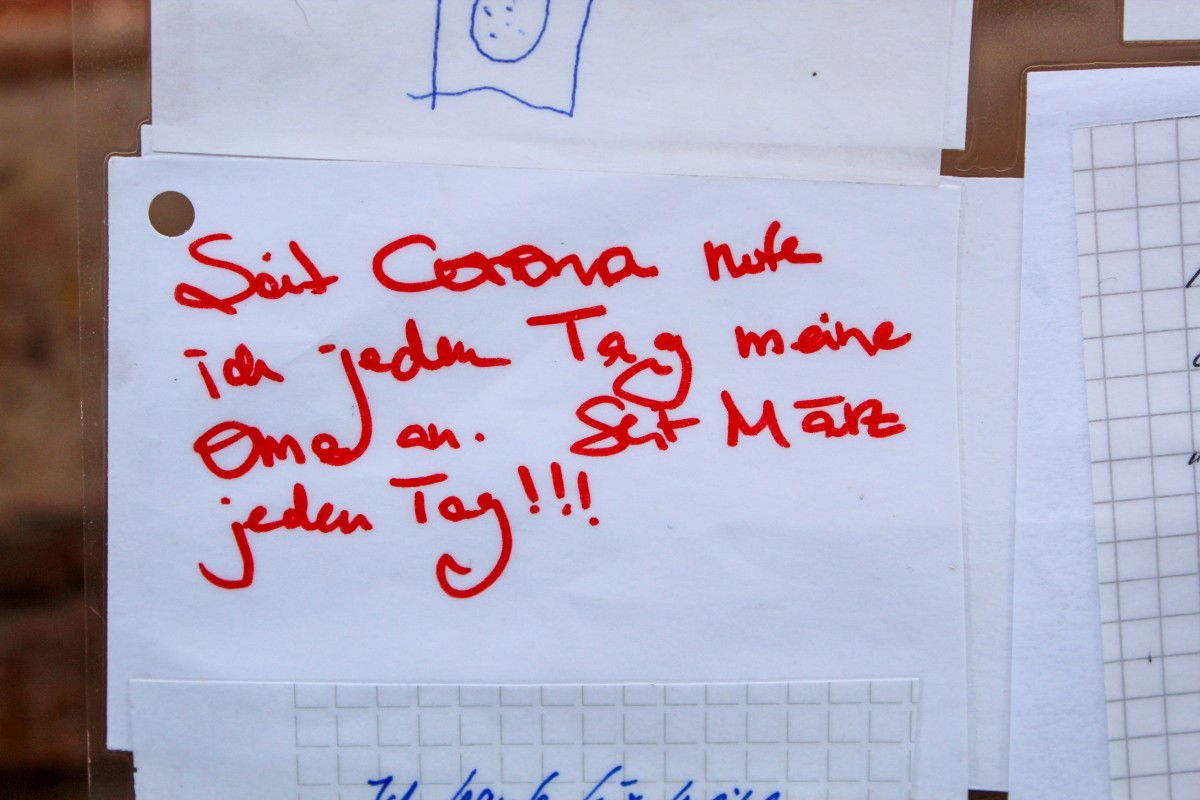 Seit Corona rufe
ich jeden Tag meine
Oma an. Seit März
jeden Tag!!!
Ich